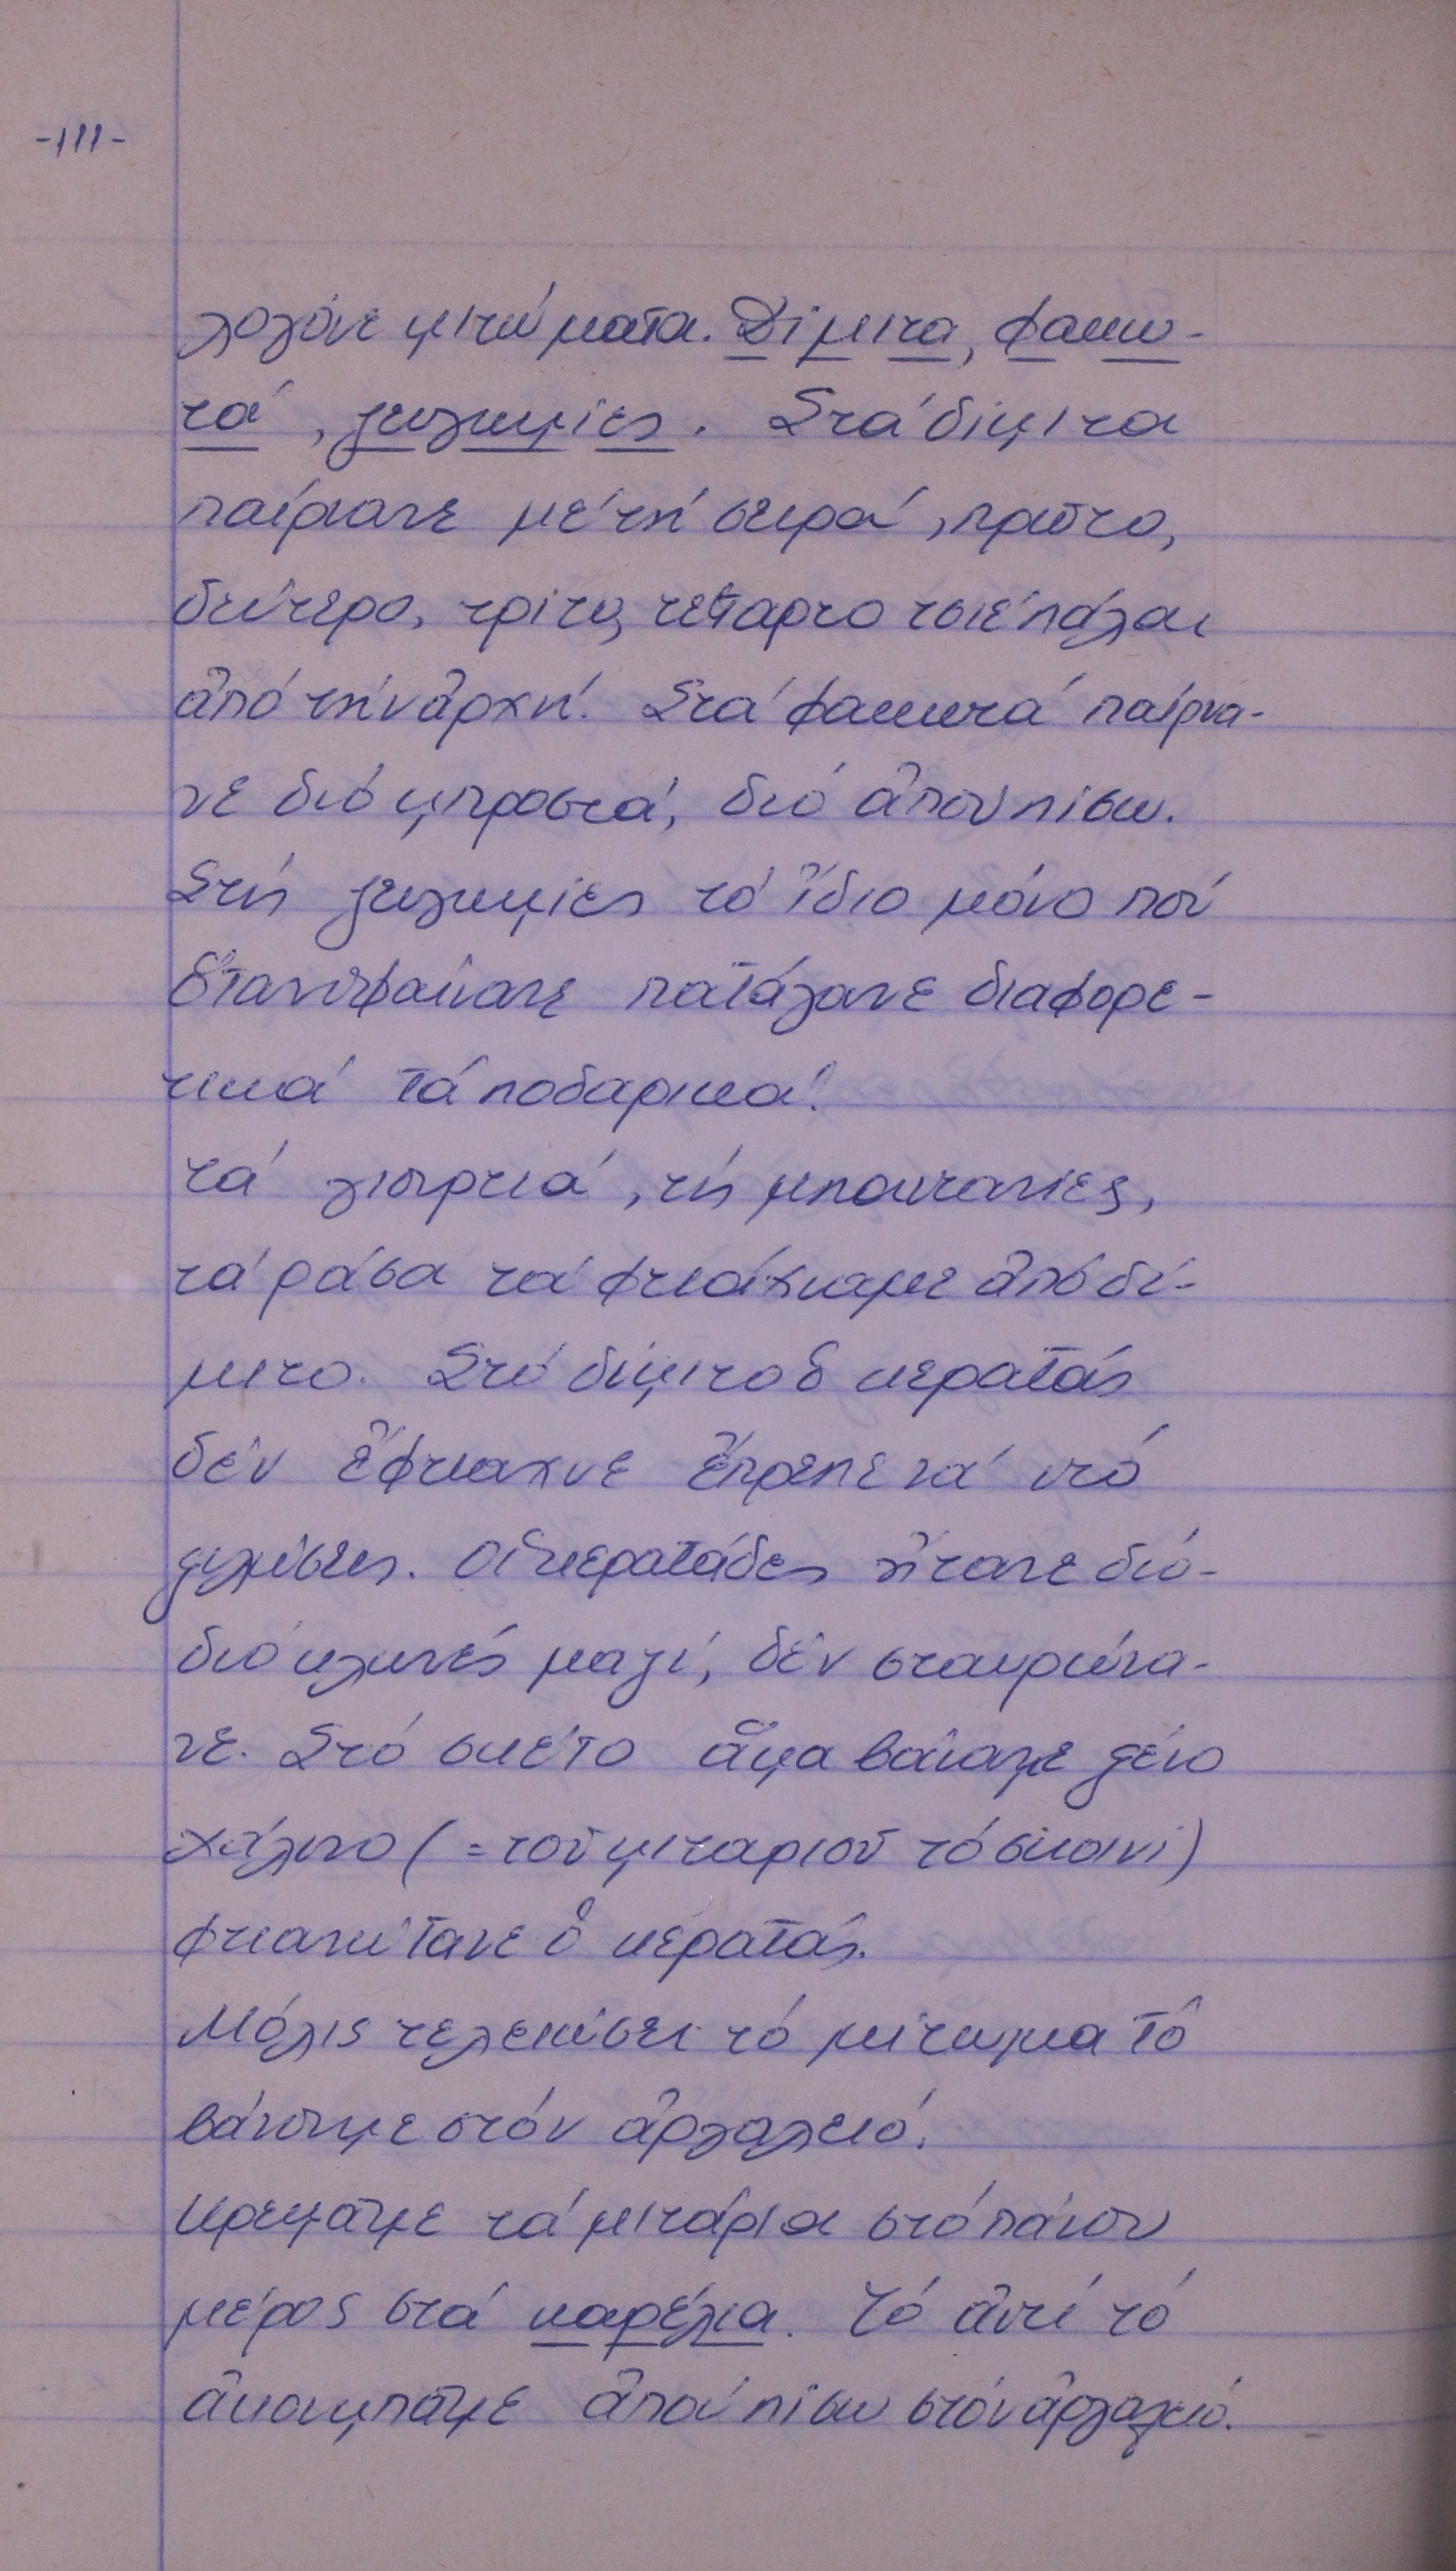 -111-
λογιῶνε μιτώματα. Δίμιτα, φακω-
τά, ζευλωμίες. Στά δίμιτα
παίρνανε μέ τή σειρά, πρῶτο,
δεύτερο, τρίτο, τέταρτο τσιέ πάλαι
ἀπό τήν ἀρχή. Στά φακωτά παίρνα-
νε διό μπροστά, διό ἀπού πίσω.
Στίς ζευλωμίες τό ἴδιο μόνο πού
ὅταν ὑφαίνανε πατάγανε διαφορε-
τικά τά ποδαρικά.
τά γιουρτιά, τίς μπαντανίες,
τά ράσα τά φτιάχναμε ἀπό δί-
μιτο. Στό δίμιτο ὁ κερατάς
δέν ἔφτιαχνε ἔπρεπε νά ντό
ξηλώσεις. Οἱ κερατάδες ἤτανε διό-
διό κλωνές μαζί, δέν σταυρώνα-
νε. Στό σκέτο ἅμα βάναμε ξένο
χάλινο (= τοῦ μιταριοῦ τό σκοινί)
φτιανότανε ὁ κερατάς.
Μόλις τελειώσει τό μίτωμα τό
βάνουμε στόν ἀργαλειό.
Κρεμᾶμε τά μιτάρια στό πάνου
μέρος στά καρέλια. Τό ἀντί τό
ἀκουμπᾶμε ἀπού πίσω στόν ἀργαλειό.